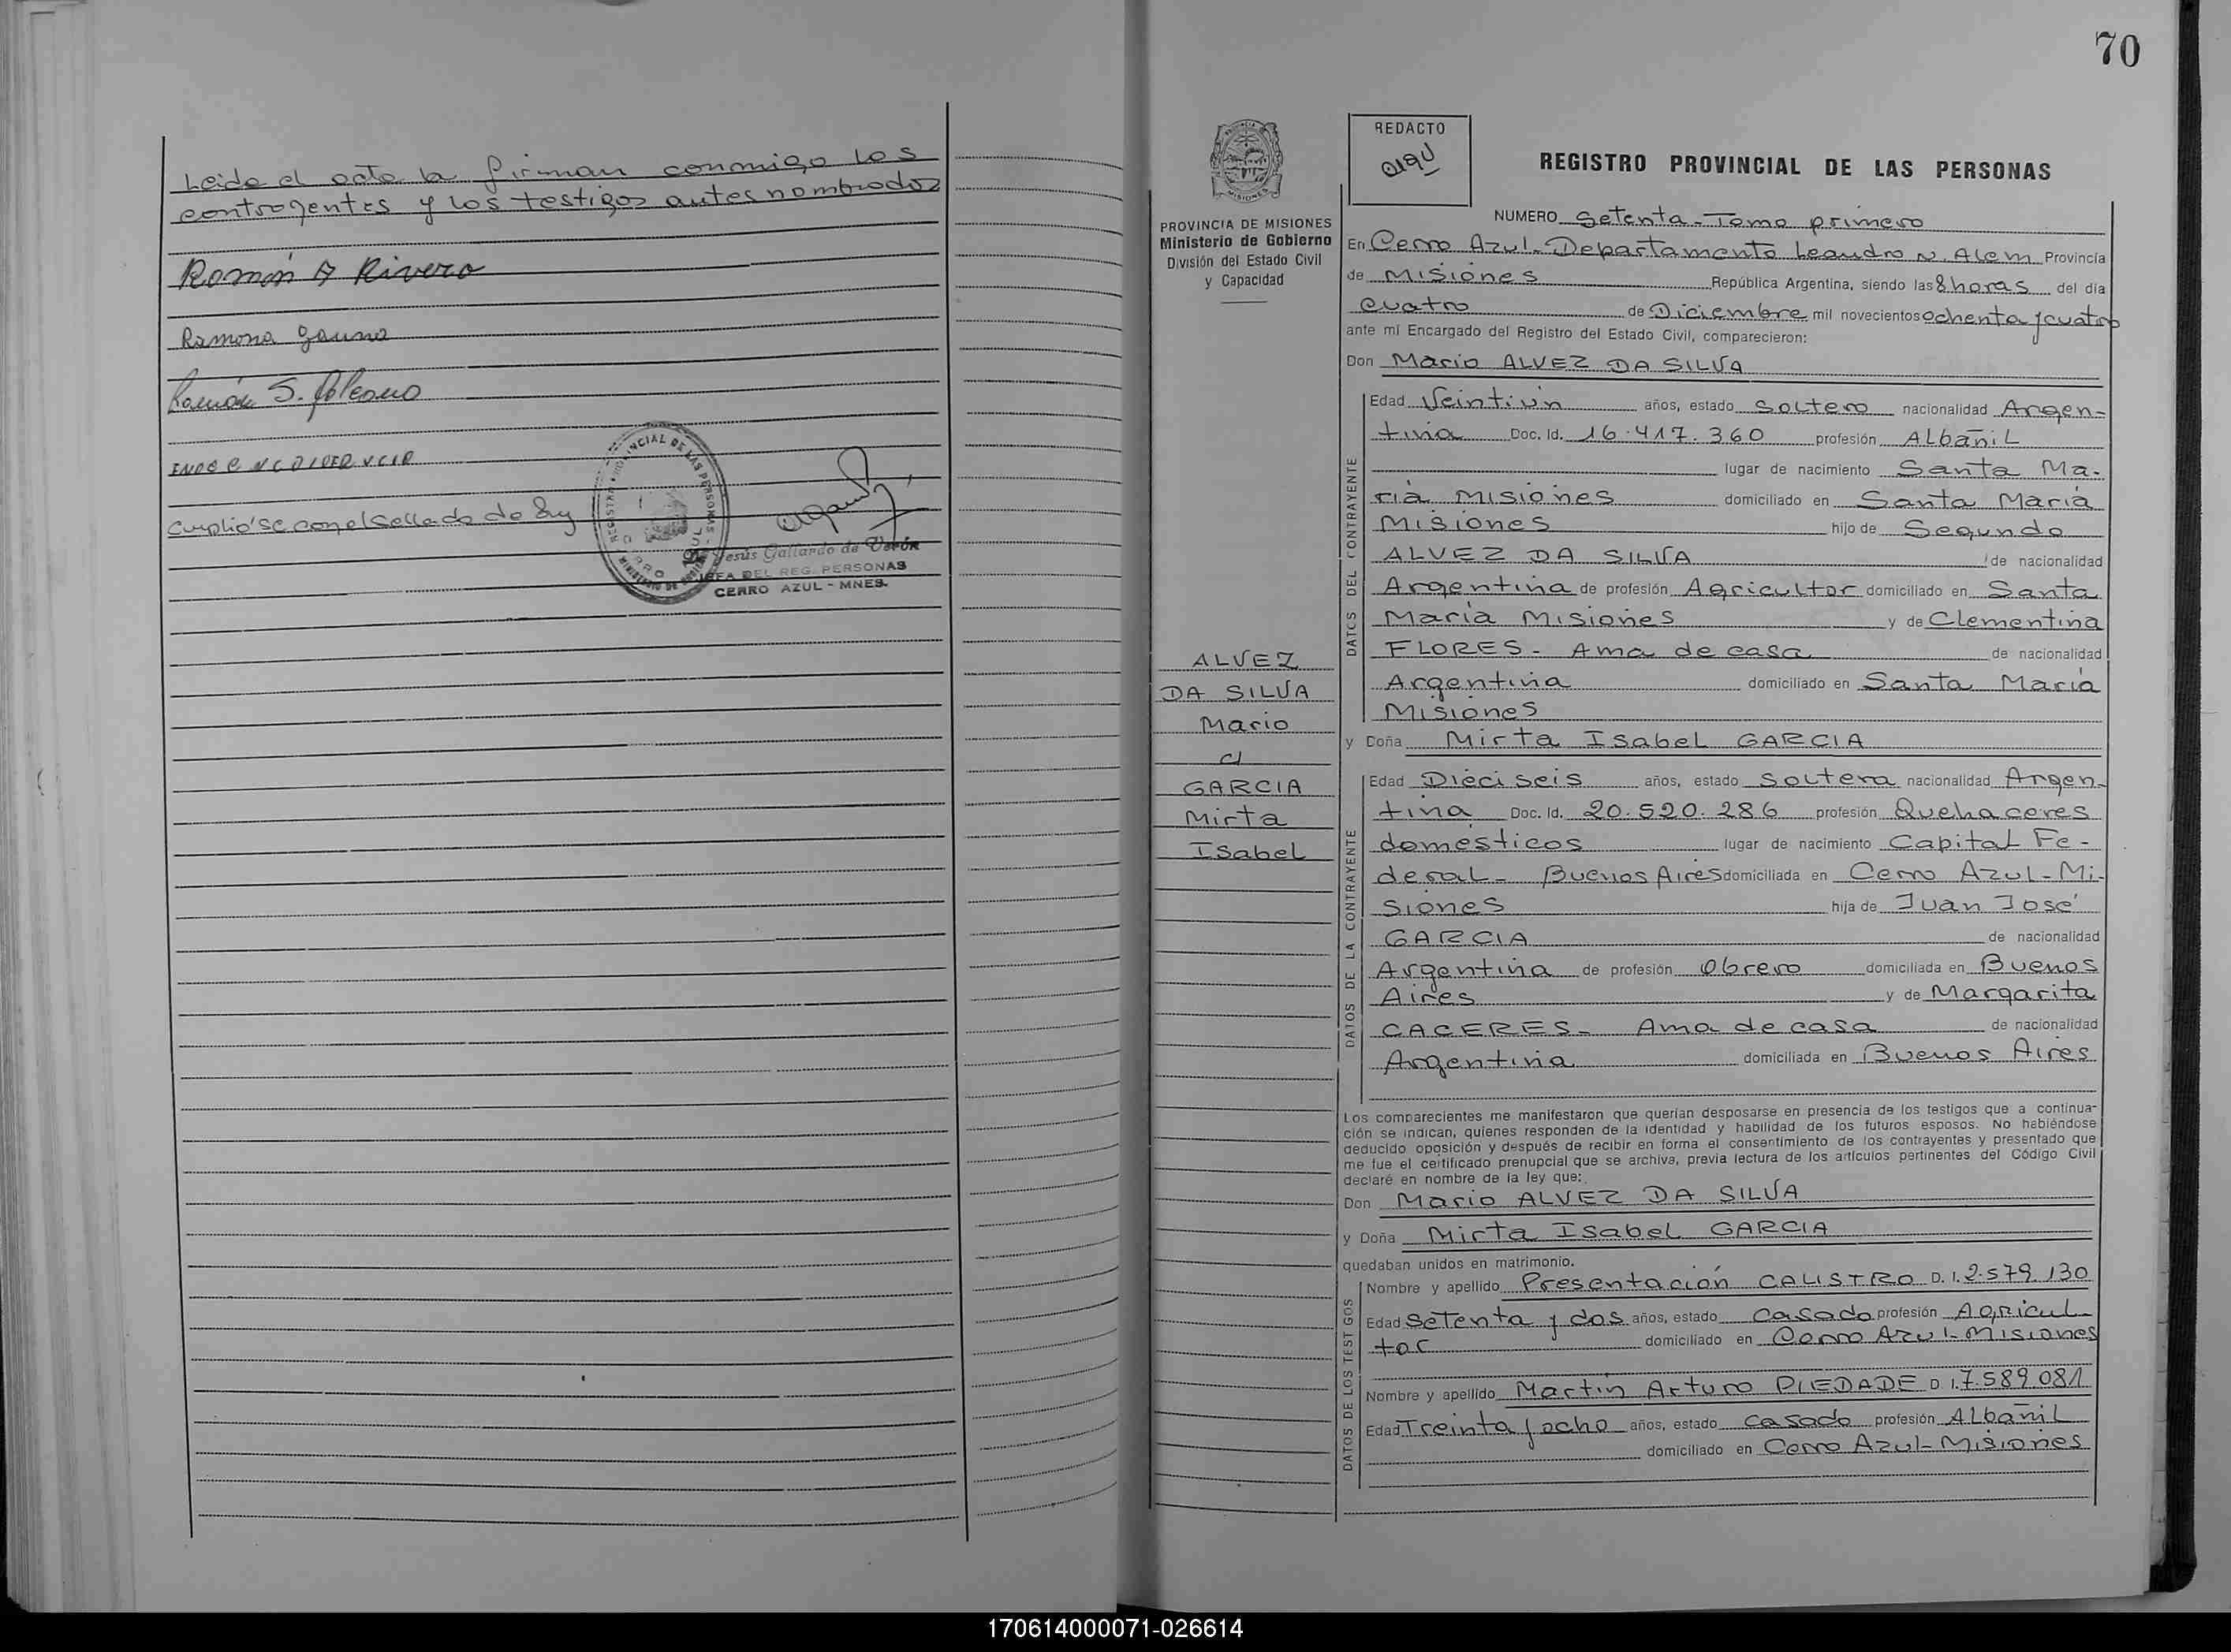 Leida el acta la firman conmigo los
contrayentes y los testigos antes nombrados
Román A Rivero
Ramona Gauna
Ramón S.
Cumplióse con el sellado de ley
REGISTRO PROVINCIAL DE LAS PERSONAS
Jesús Gallardo de Verón
JEFA DEL REG. PERSONAS
CERRO AZUL - MNES.
70
REDACTO
REGISTRO PROVINCIAL DE LAS PERSONAS
PROVINCIA DE MISIONES
Ministerio de Gobierno
División del Estado Civil
y Capacidad
ALVEZ
DA SILVA
Mario
c/
GARCIA
Mirta
Isabel
NUMERO Setenta - Tomo primero
En Cerro Azul - Departamento Leandro N. Alem Provincia
de Misiones República Argentina, siendo las 8 horas del día
cuatro de Diciembre mil novecientos ochenta y cuatro
ante mí Encargado del Registro del Estado Civil, comparecieron:
Don Mario ALVEZ DA SILVA
DATOS DEL CONTRAYENTE
Edad Veintiún años, estado soltero nacionalidad Argen-
tina Doc. Id. 16.417.360 profesión Albañil
lugar de nacimiento Santa Ma-
ría Misiones domiciliado en Santa María
Misiones hijo de Segundo
ALVEZ DA SILVA de nacionalidad
Argentina de profesión Agricultor domiciliado en Santa
María Misiones y de Clementina
FLORES - Ama de casa de nacionalidad
Argentina domiciliado en Santa María
Misiones
y Doña Mirta Isabel GARCIA
DATOS DE LA CONTRAYENTE
Edad Dieciseis años, estado soltera nacionalidad Argen-
tina Doc. Id. 20.520.286 profesión Quehaceres
domésticos lugar de nacimiento Capital Fe-
deral - Buenos Aires domiciliada en Cerro Azul - Mi-
siones hija de Juan José
GARCIA de nacionalidad
Argentina de profesión Obrero domiciliada en Buenos
Aires y de Margarita
CACERES - Ama de casa de nacionalidad
Argentina domiciliada en Buenos Aires
Los comparecientes me manifestaron que querían desposarse en presencia de los testigos que a continua-
ción se indican, quienes responden de la identidad y habilidad de los futuros esposos. No habiéndose
deducido oposición y después de recibir en forma el consentimiento de los contrayentes y presentado que
me fue el certificado prenupcial que se archiva, previa lectura de los artículos pertinentes del Código Civil
declaré en nombre de la ley que:
Don Mario ALVEZ DA SILVA
y Doña Mirta Isabel GARCIA
quedaban unidos en matrimonio.
DATOS DE LOS TESTIGOS
Nombre y apellido Presentación CALISTRO D. I. 2.579.130
Edad setenta y dos años, estado casado profesión Agricul-
tor domiciliado en Cerro Azul - Misiones
Nombre y apellido Martín Arturo PIEDADE D. I. 7.589.081
Edad Treinta y ocho años, estado casado profesión Albañil
domiciliado en Cerro Azul - Misiones
170614000071-026614